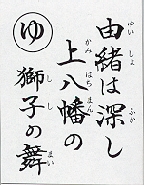 由緒は深し
ゆいしょ ふか
上八幡の
かみはちまん
獅子の舞
しし まい
ゆ